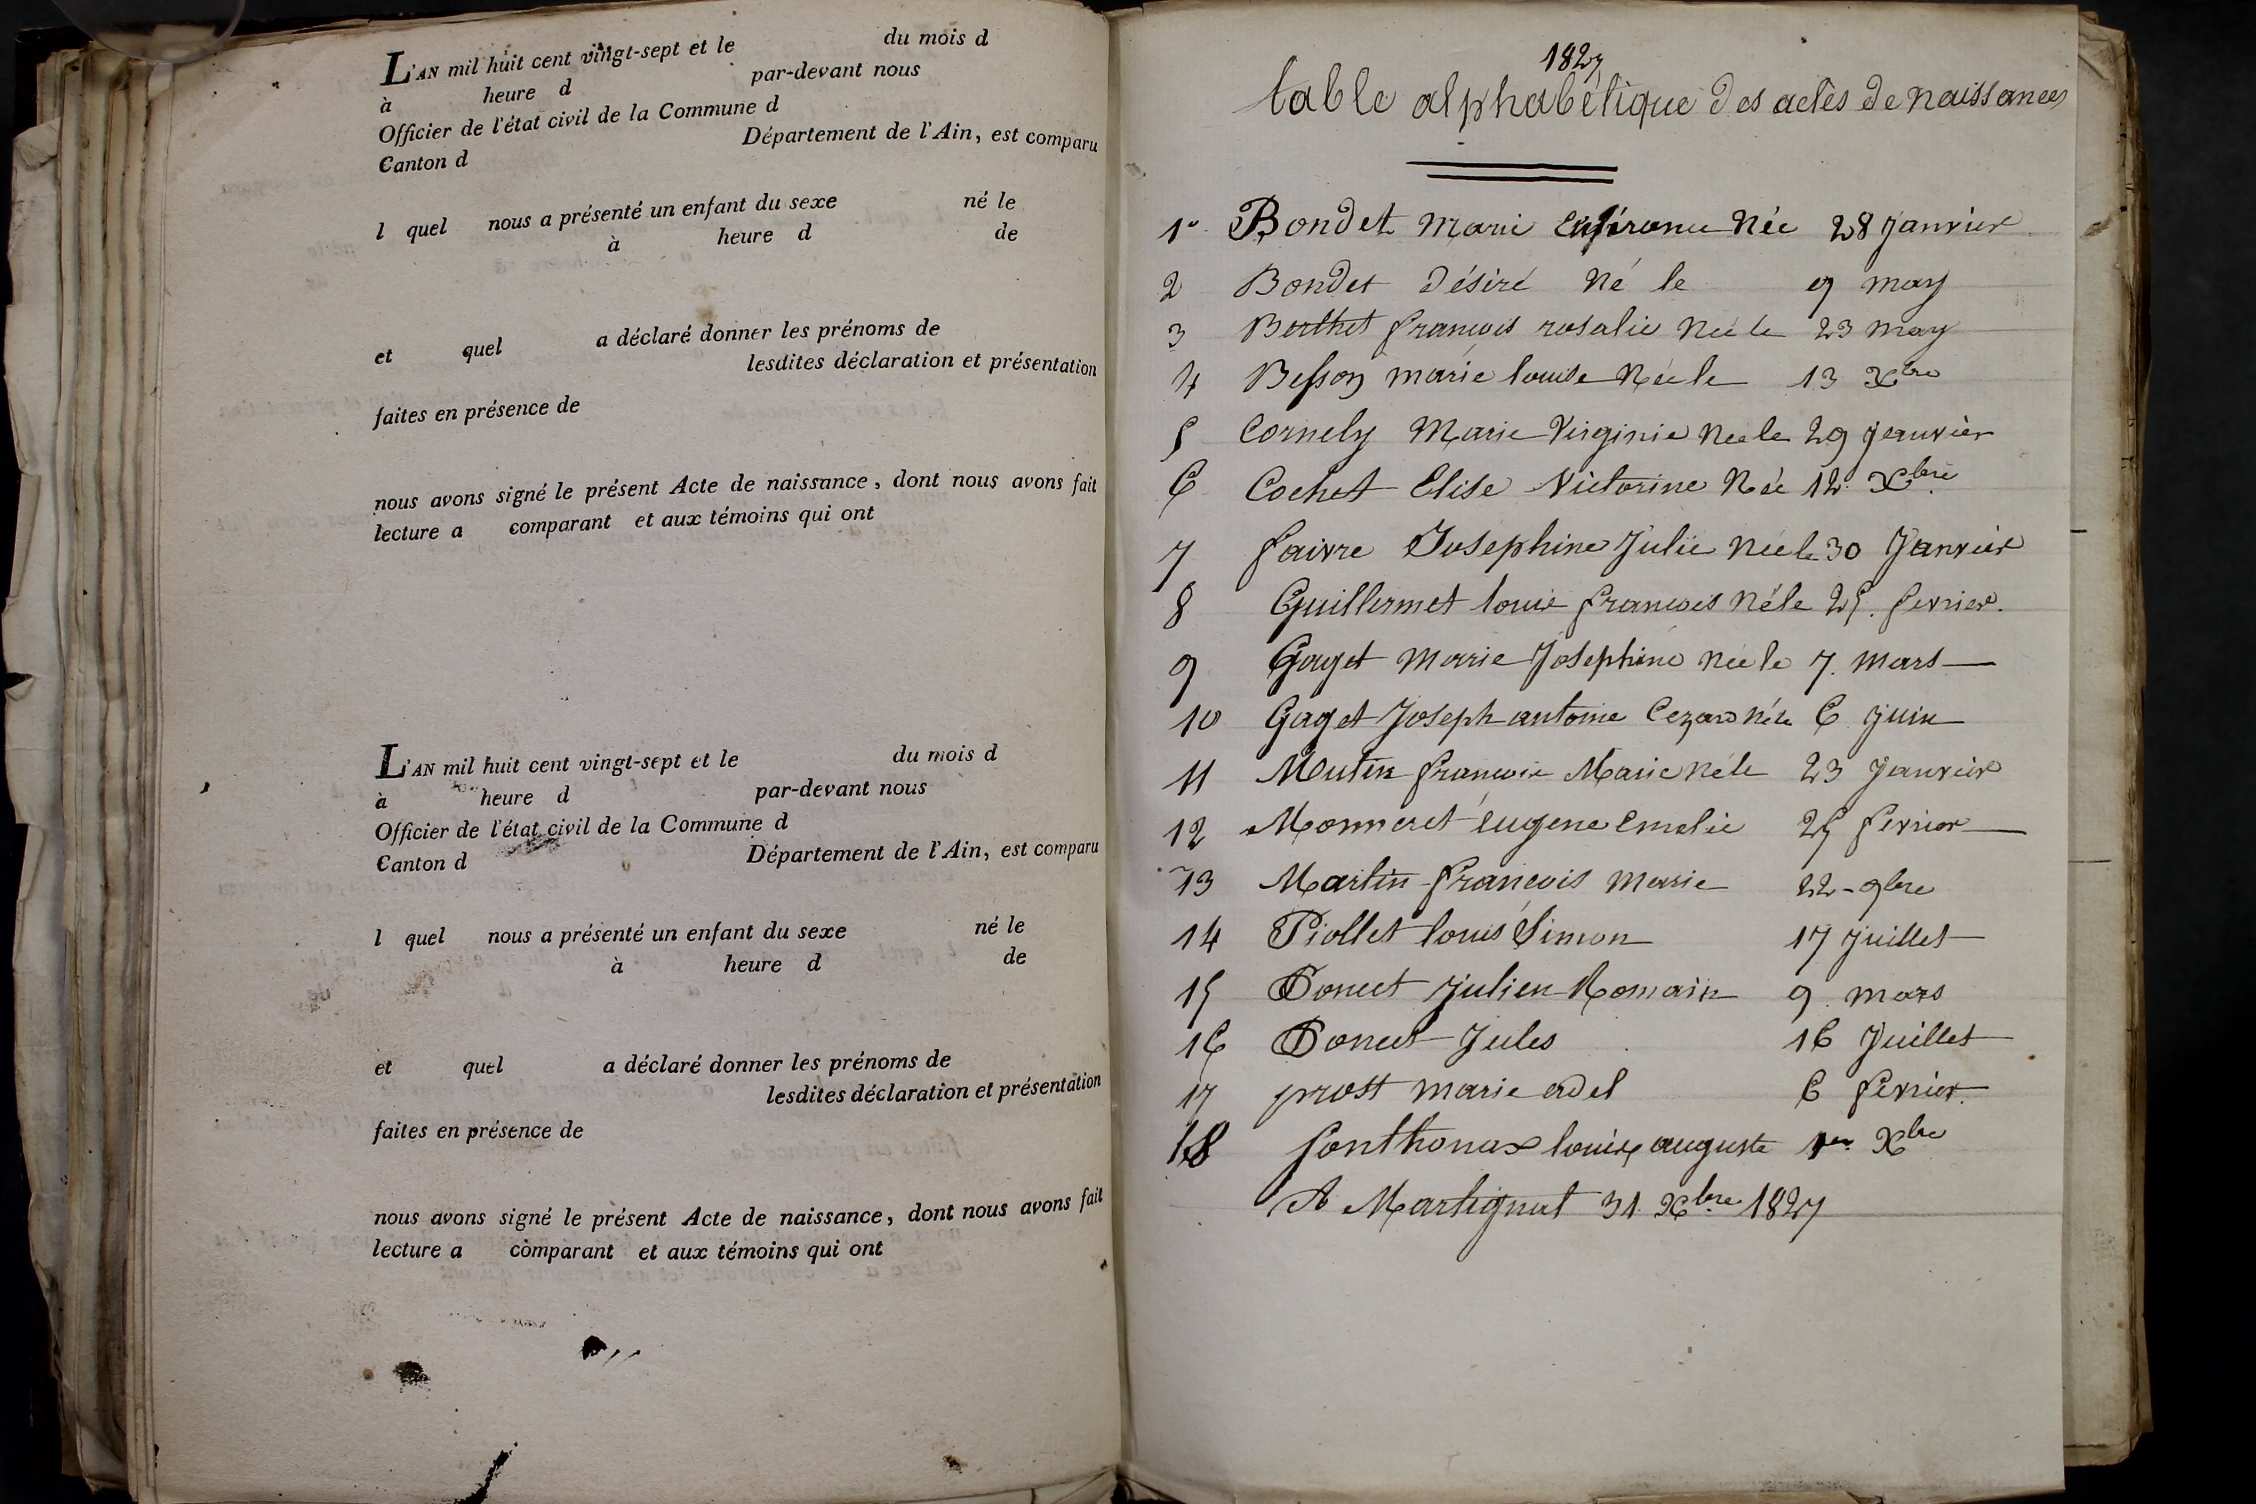 L'AN mil huit cent vingt-sept et le du mois d
à heure d par-devant nous
Officier de l'état civil de la Commune d
Canton d Département de l'Ain, est comparu
l quel nous a présenté un enfant du sexe né le
à heure d de
et quel a déclaré donner les prénoms de
lesdites déclaration et présentation
faites en présence de
nous avons signé le présent Acte de naissance, dont nous avons fait
lecture a comparant et aux témoins qui ont
L'AN mil huit cent vingt-sept et le du mois d
à heure d par-devant nous
Officier de l'état civil de la Commune d
Canton d Département de l'Ain, est comparu
l quel nous a présenté un enfant du sexe né le
à heure d de
et quel a déclaré donner les prénoms de
lesdites déclaration et présentation
faites en présence de
nous avons signé le présent Acte de naissance, dont nous avons fait
lecture a comparant et aux témoins qui ont
1827
table alphabétique des actes de naissances
1º Bondet Marie Née 28 Janvier
2 Bondet désiré Né le 9 may
3 Berthet françois rosalie Née le 23 may
4 Besson marie louise Née le 13 Xbre
5 Cornely Marie Virginie Née le 29 Janvier
6 Cochet Elise Victorine Née 12 Xbre
7 faivre Josephine Julie Née le 30 Janvier
8 Guillermet louis françois Né le 25. fevrier.
9 Gaget Marie Josephine Née le 7. Mars
10 Gaget Joseph antoine Cezard Né le 6 juin
11 Mutin françois Marie Né le 23 Janvier
12 Monneret eugene emelie 25 fevrier
13 Martin françois Marie 22 - 9bre
14 Piollet louis Simon 17 Juillet
15 Poncet Julien Romain 9 mars
16 Poncet Jules 16 Juillet
17 prost marie adel 6 fevrier.
18 Sonthonax louis auguste 1er Xbre
A Martignat 31 Xbre 1827